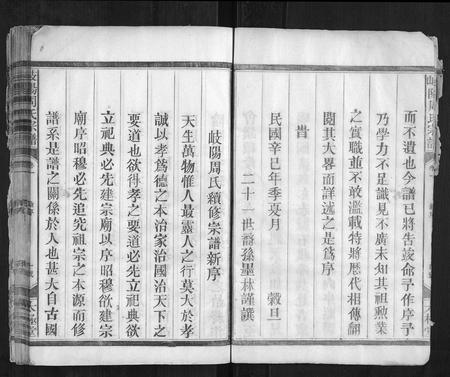 岐陽周氏宗譜
而不遺也今譜已將告竣命予作序予
乃學力不足識見不廣未知其祖勲業
之實職並不敢濫載特將歷代相傳翻
閱其大畧而詳述之是爲序
旹
民國辛巳年季夏月 穀旦
二十一世裔孫墨林謹譔
岐陽周氏續修宗譜新序
天生萬物惟人最靈人之行莫大於孝
誠以孝爲德之本治家治國治天下之
要道也欲得孝之要道必先立祀典欲
立祀典必先建宗廟以序昭穆欲建宗
廟序昭穆必先追究祖宗之本源而修
譜系是譜之關係於人也甚大自古國
岐陽周氏宗譜